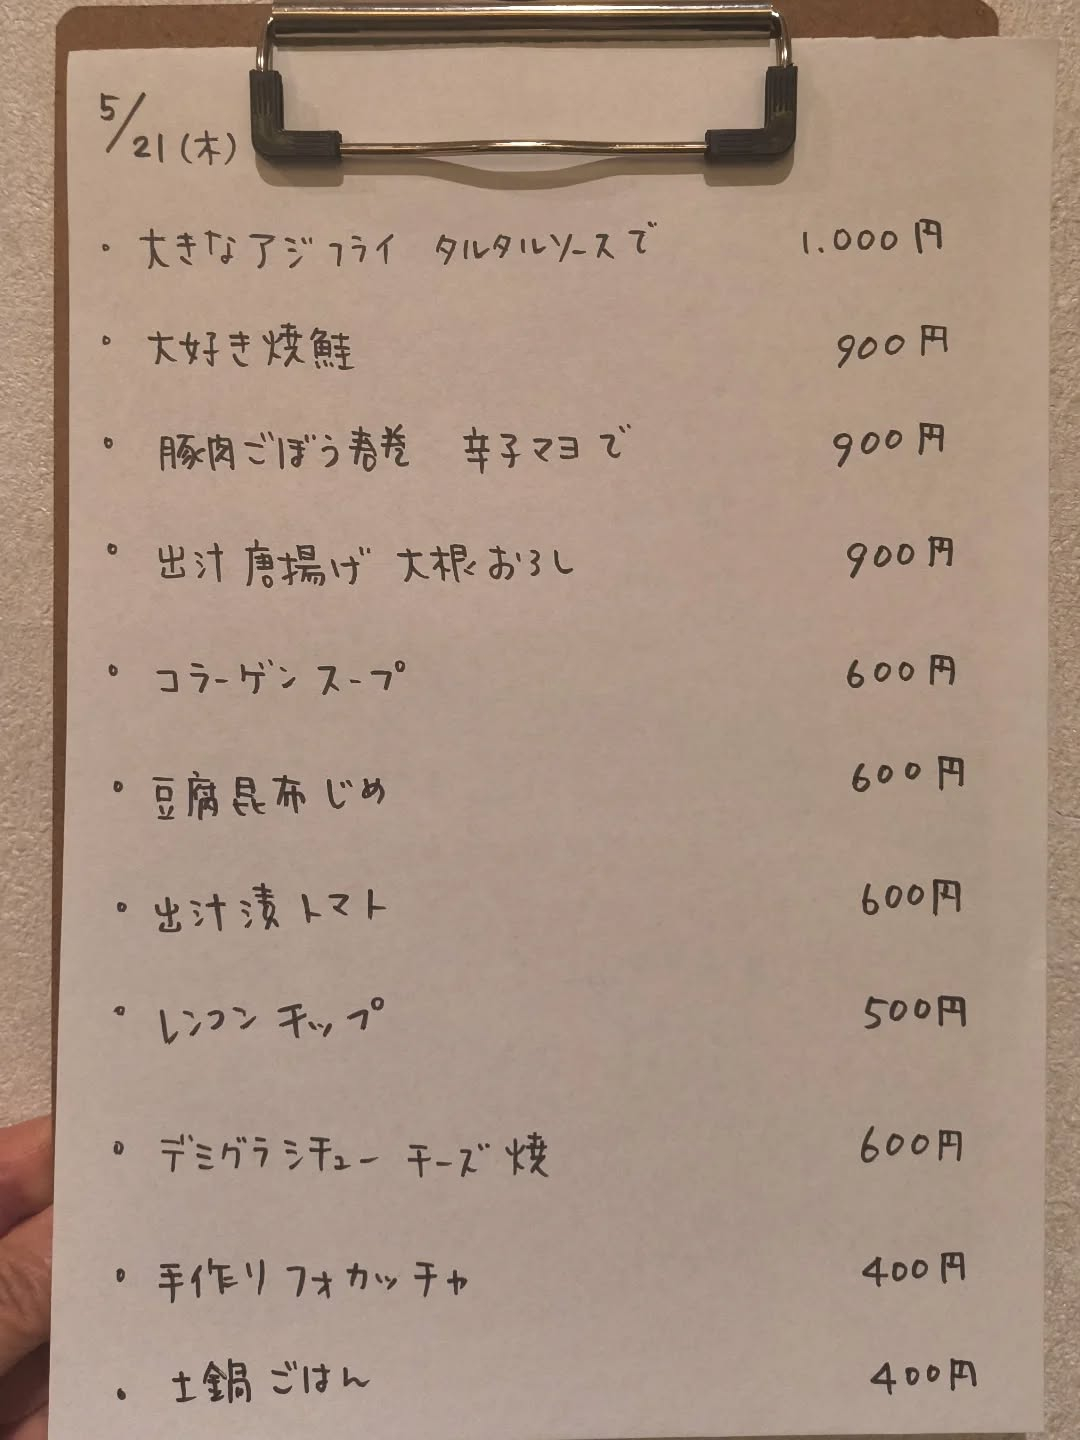 5/21(木)
・大きなアジフライ タルタルソースで 1.000円
・大好き焼鮭 900円
・豚肉ごぼう春巻 辛子マヨで 900円
・出汁唐揚げ 大根おろし 900円
・コラーゲンスープ 600円
・豆腐昆布じめ 600円
・出汁漬トマト 600円
・レンコンチップ 500円
・デミグラシチュー チーズ焼 600円
・手作りフォカッチャ 400円
・土鍋ごはん 400円